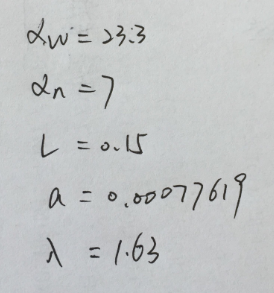 αw = 23.3
αn = 7
L = 0.15
a = 0.00077619
λ = 1.63